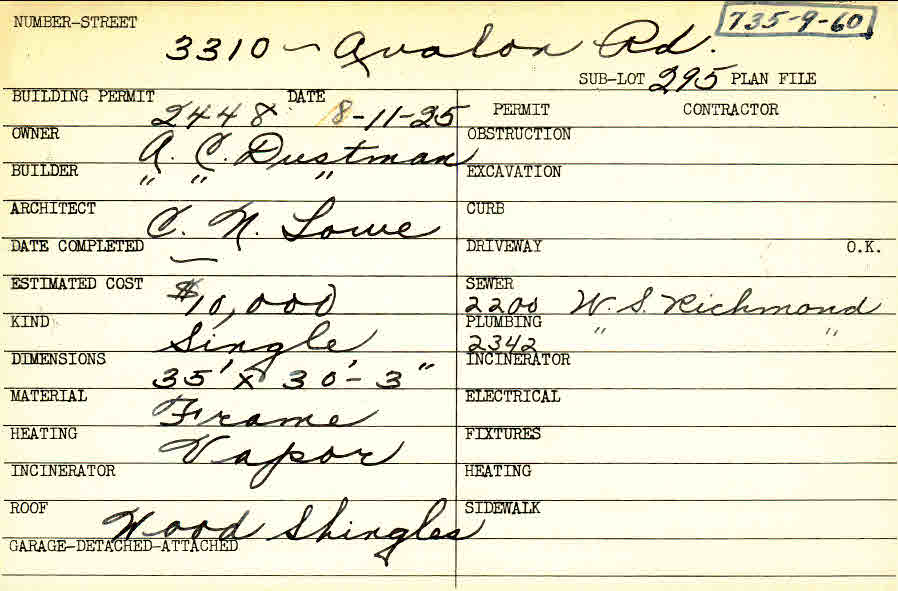 NUMBER-STREET 3310 - Avalon Rd. 735-9-60
SUB-LOT 295 PLAN FILE
BUILDING PERMIT 2448 DATE 8-11-25 PERMIT CONTRACTOR
OWNER A. C. Dustman OBSTRUCTION
BUILDER " " " EXCAVATION
ARCHITECT C. N. Lowe CURB
DATE COMPLETED — DRIVEWAY O.K.
ESTIMATED COST $10,000 SEWER 2200 W. S. Richmond
KIND Single PLUMBING 2342 " "
DIMENSIONS 35' x 30'-3" INCINERATOR
MATERIAL Frame ELECTRICAL
HEATING Vapor FIXTURES
INCINERATOR HEATING
ROOF Wood Shingles SIDEWALK
GARAGE-DETACHED-ATTACHED